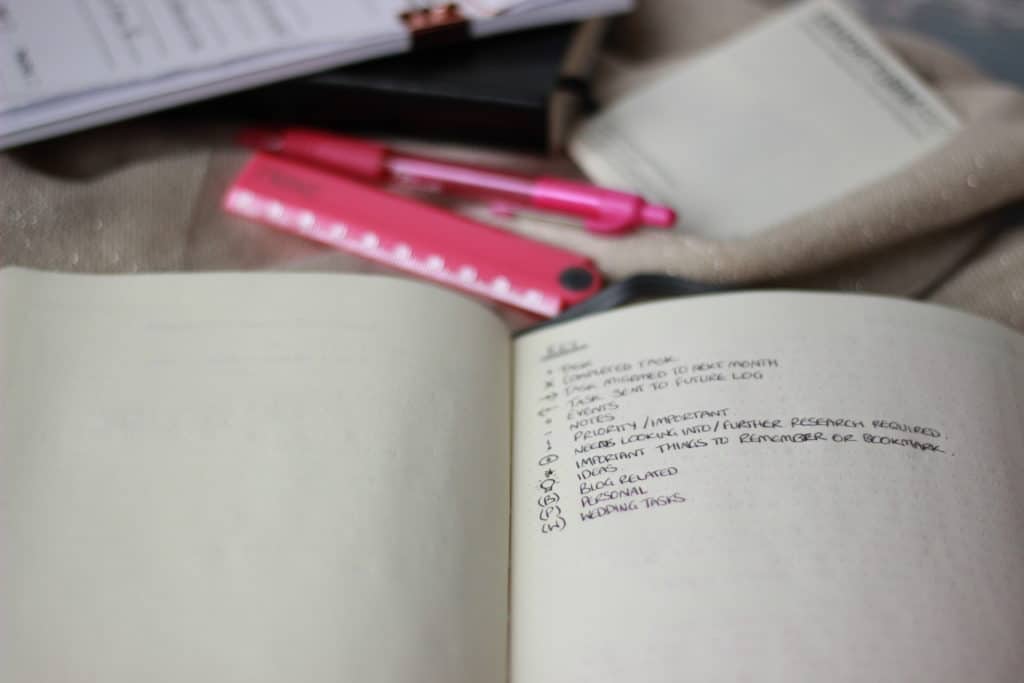 KEY
• TASK
× COMPLETED TASK
→ TASK MIGRATED TO NEXT MONTH
← TASK SENT TO FUTURE LOG
EVENTS
- NOTES
! PRIORITY / IMPORTANT
NEEDS LOOKING INTO / FURTHER RESEARCH REQUIRED.
* IMPORTANT THINGS TO REMEMBER OR BOOKMARK.
IDEAS
(B) BLOG RELATED
(P) PERSONAL
(W) WEDDING TASKS